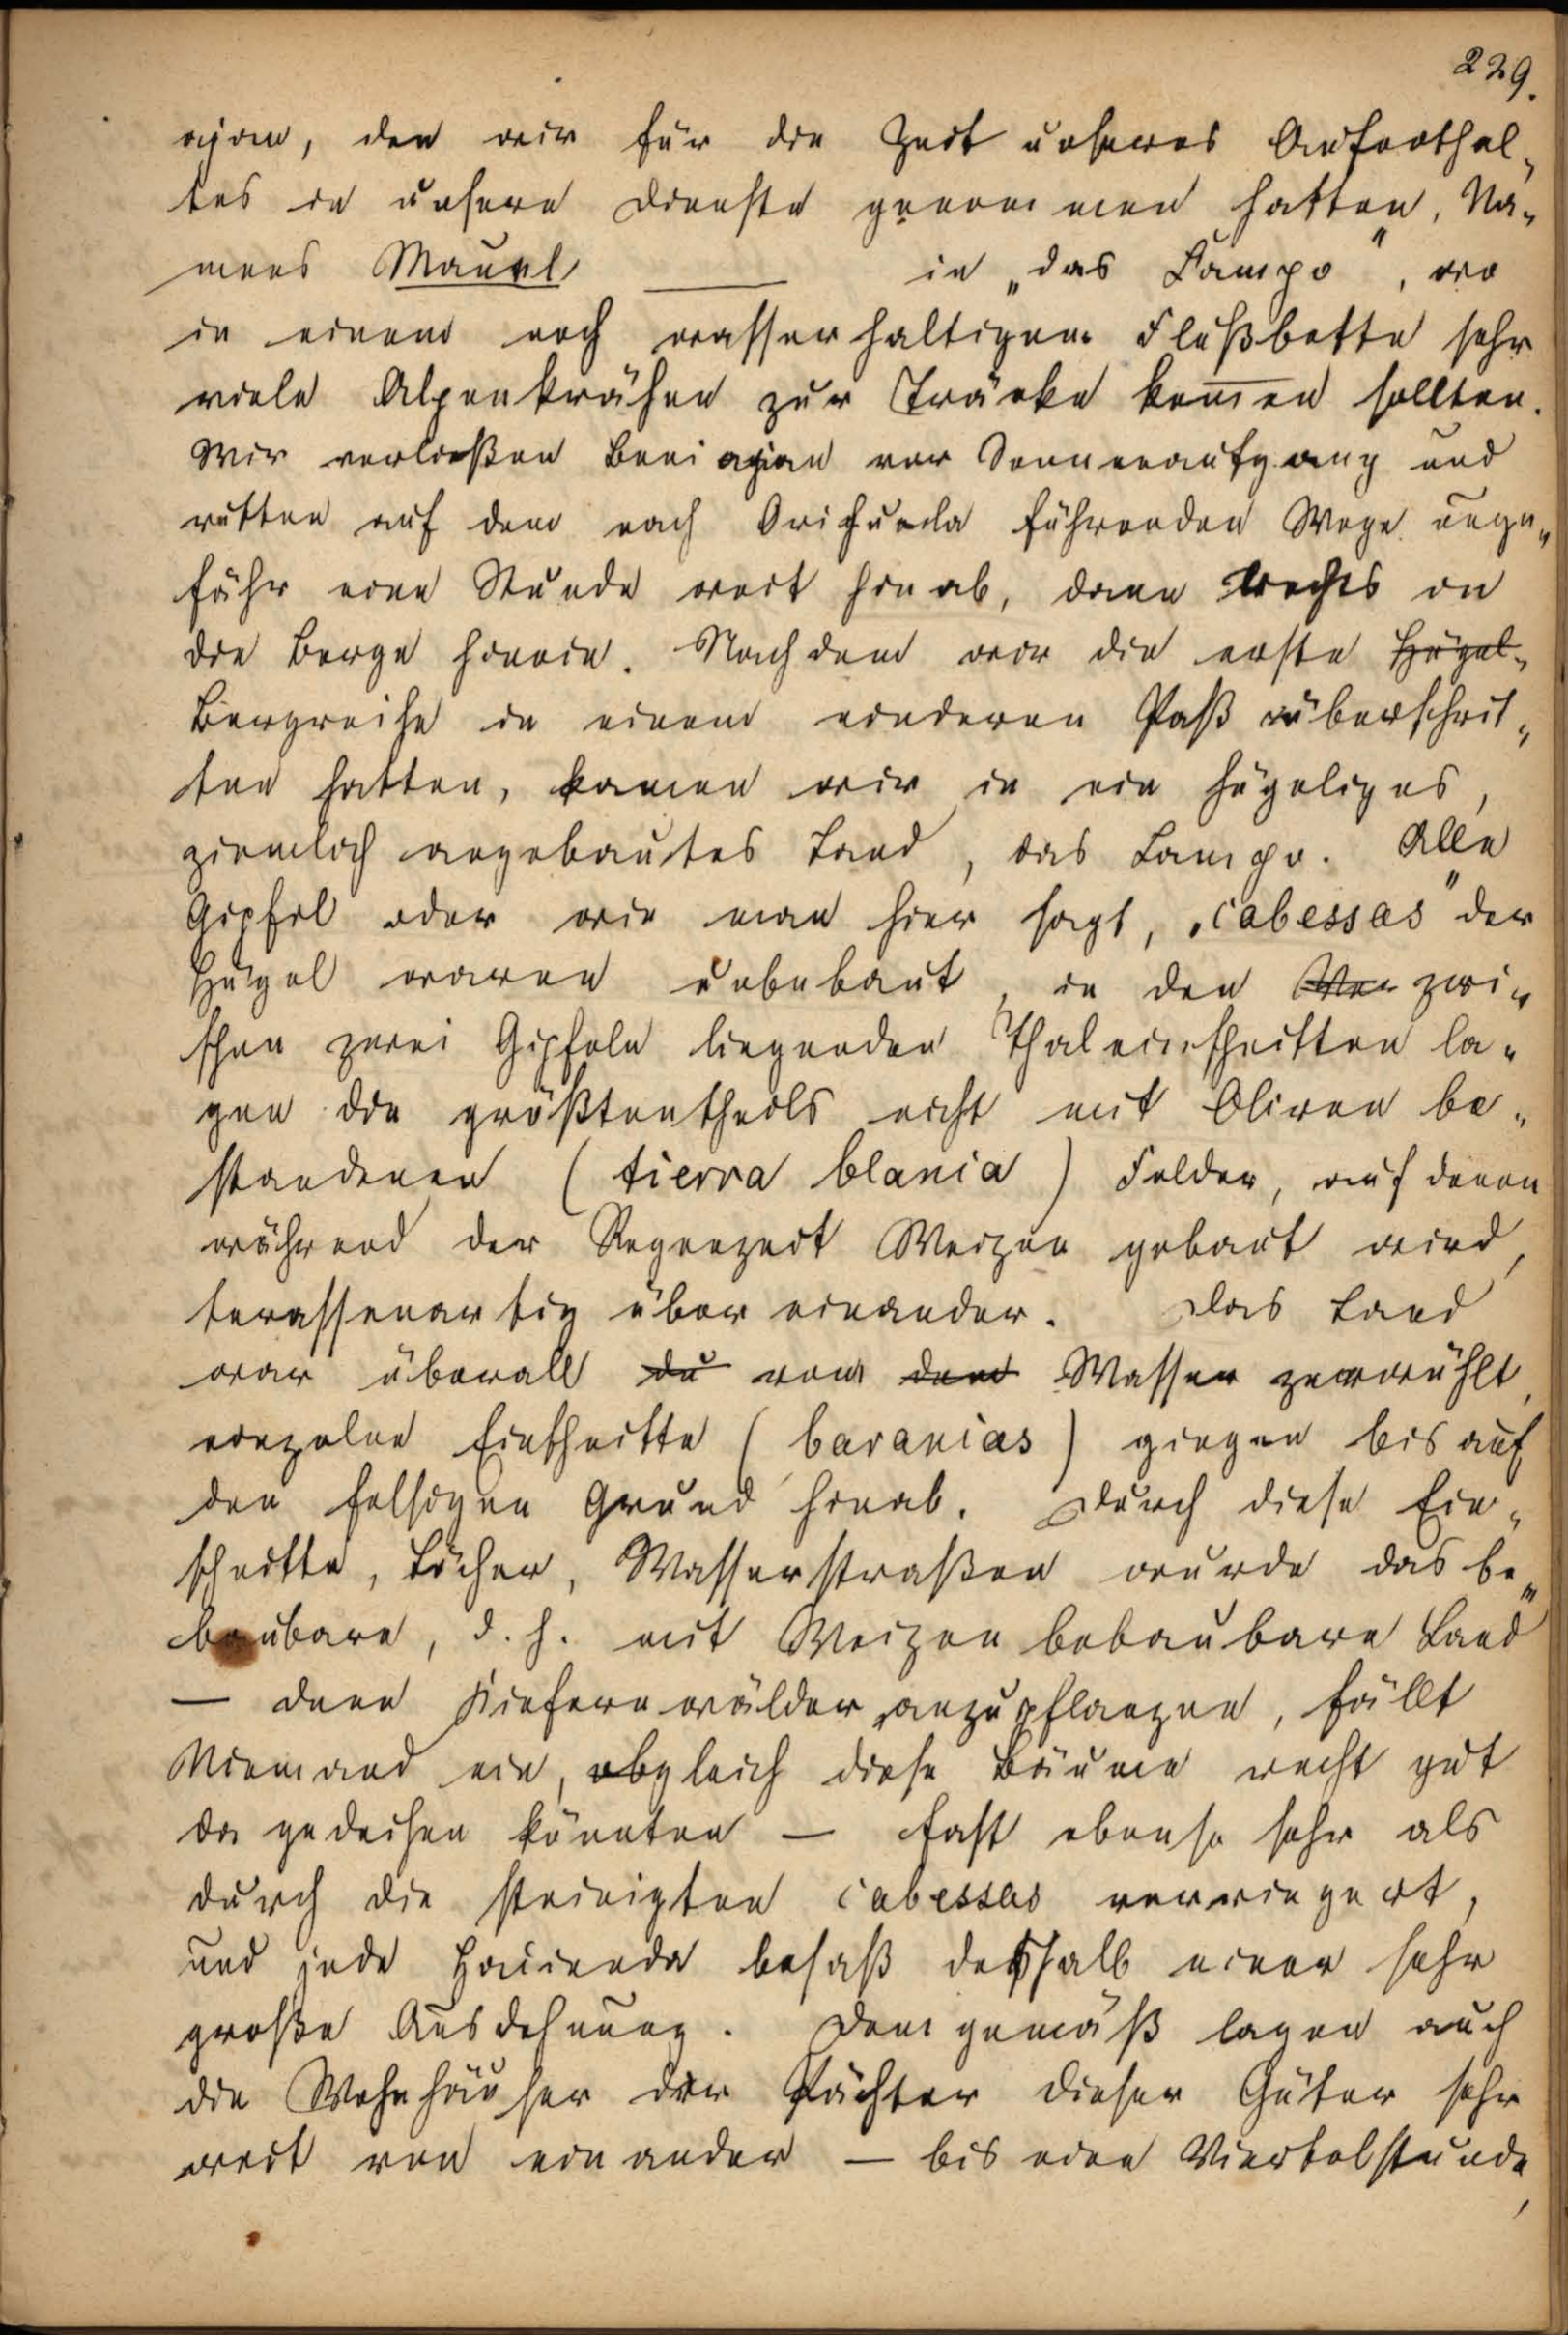 229.
ajan, den wir für die Zeit unseres Aufenthal-
tes in unsere Dienste genommen hatten, Na-
mens Manuel in „das Campo", wo
in einem noch wasserhaltigem Flußbette sehr
viele Alpenkrähen zur Tränke kommen sollten.
Wir verließen Beniajan vor Sonnenaufgang und
ritten auf dem nach Orihuela führenden Wege unge-
fähr eine Stunde weit hinab, dann rechts in
die Berge hinein. Nachdem wir die erste Hügel-
Bergreihe in einem niederen Paß überschrit-
ten hatten, kamen wir in ein hügeliges,
ziemlich angebautes Land, das Campo. Alle
Gipfel oder wie man hier sagt, „cabessas" der
Hügel waren unbebaut, in den zwi-
schen zwei Gipfeln liegenden Thaleinschnitten la-
gen die größtentheils nicht mit Oliven be-
standenen (tierra blanca) Felder, auf denen
während der Regenzeit Weizen gebaut wird,
terassenartig über einander. Das Land
war überall du vom dem Wasser zerwühlt,
einzelne Einschnitte (barancas) gingen bis auf
den felsigen Grund hinab. Durch diese Ein-
schnitte, Löcher, Wasserstraßen wurde das be-
baubare, d. h. mit Weizen bebaubare Land
— denn Kiefernwälder anzupflanzen, fällt
Niemand ein, obgleich diese Bäume recht gut
da gedeihen könnten — fast ebenso sehr als
durch die steinigten cabessas verringert,
und jede Hacienda besaß deshalb einen sehr
große Ausdehnung. Dem gemäß lagen auch
die Wohnhäuser der Pächter dieser Güter sehr
weit von einander — bis eine Viertelstunde,